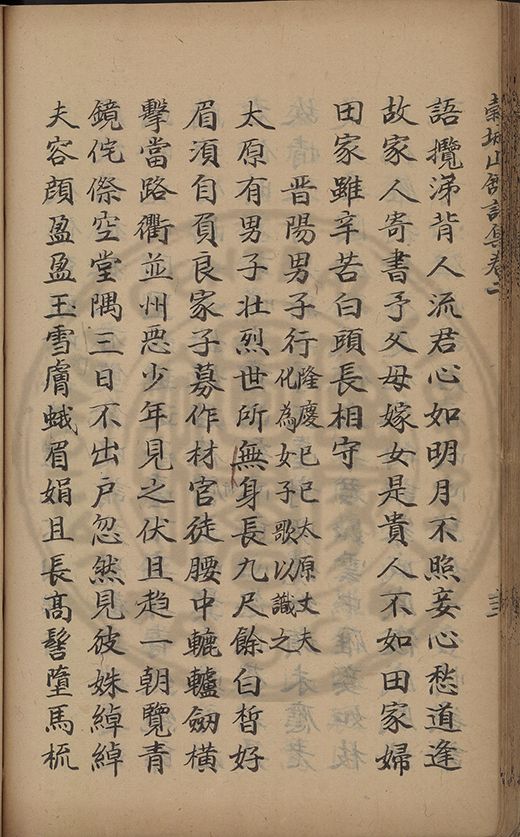 崇城山館詩集卷二
語攬涕背人流君心如明月不照妾心愁道逢
故家人寄書予父母嫁女是貴人不如田家婦
田家雖辛苦白頭長相守
晋陽男子行隆慶己巳太原丈夫
化為女子歌以識之
太原有男子壯烈世所無身長九尺餘白皙好
眉須自負良家子募作材官徒腰中轆轤劒橫
擊當路衢並州惡少年見之伏且趋一朝覽青
鏡侘傺空堂隅三日不出戶忽然見彼姝綽綽
夫容顔盈盈玉雪膚蛾眉娟且長髙髻墮馬梳